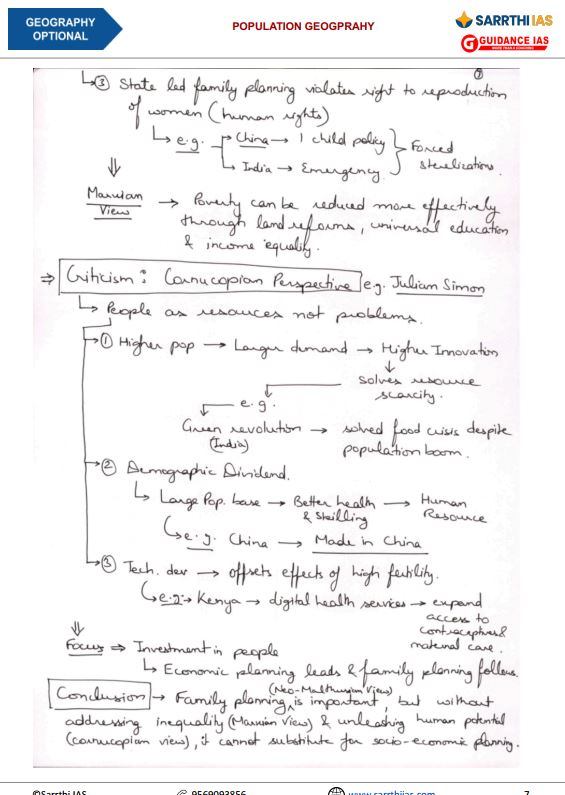 GEOGRAPHY
OPTIONAL
POPULATION GEOGPRAHY
SARRTHI IAS
GUIDANCE IAS
7
③ State led family planning violates right to reproduction
of women (human rights)
↳ e.g. → China → 1 child policy } Forced
→ India → Emergency } sterelizations.
⇓
Marxian → Poverty can be reduced more effectively
View through land reforms, universal education
& income equality.
⇒ Criticism: Cornucopian Perspective e.g. Julian Simon
↳ People as resources not problems.
→ ① Higher pop → Larger demand → Higher Innovation
↓
solves resource
scarcity.
e.g.
Green revolution → solved food crisis despite
(India) population boom.
→ ② Demographic Dividend.
↳ Large Pop. base → Better health → Human
& Skilling Resource
↳ e.g. China → Made in China
→ ③ Tech. dev → offsets effects of high fertility.
↳ e.g. → Kenya → digital health services → expand
access to
contraceptives &
maternal care.
⇓
Focus ⇒ Investment in people
↳ Economic planning leads & family planning follows.
(Neo-Malthusian View)
Conclusion → Family planning ^ is important, but without
addressing inequality (Marxian View) & unleashing human potential
(cornucopian view), it cannot substitute for socio-economic planning.
©Sarrthi IAS 9569093856 www.sarrthiias.com 7